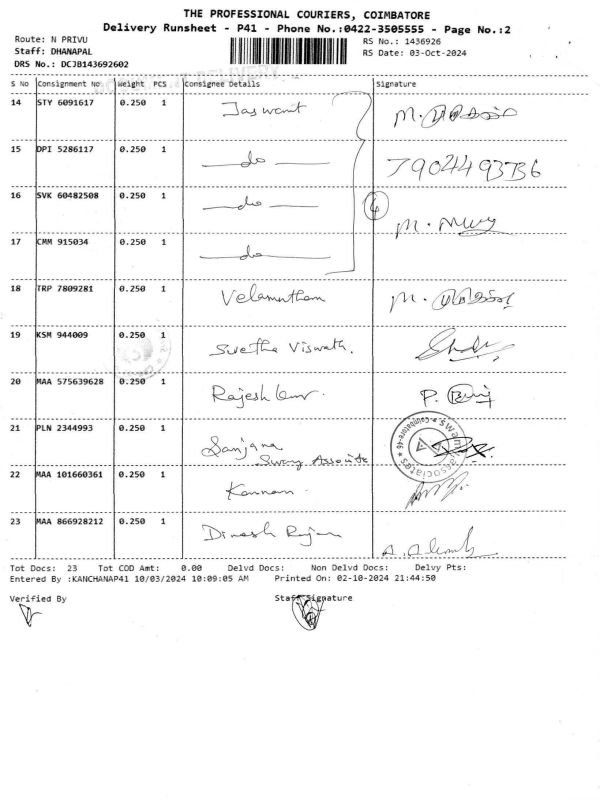 THE PROFESSIONAL COURIERS, COIMBATORE
Delivery Runsheet - P41 - Phone No.:0422-3505555 - Page No.:2
Route: N PRIVU RS No.: 1436926
Staff: DHANAPAL RS Date: 03-Oct-2024
DRS No.: DCJB143692602
S No Consignment No Weight PCS Consignee Details Signature
14 STY 6091617 0.250 1 Jaswant M.
15 DPI 5286117 0.250 1 — do — 7904493736
16 SVK 60482508 0.250 1 — do — 4 M.
17 CMM 915034 0.250 1 — do —
18 TRP 7809281 0.250 1 Velamutham M.
19 KSM 944009 0.250 1 Swetha Viswath.
20 MAA 575639628 0.250 1 Rajesh P.
21 PLN 2344993 0.250 1 Sanjana
Associates Coimbatore-46
22 MAA 101660361 0.250 1 Kannan
23 MAA 866928212 0.250 1 Dinesh Rajan A.
Tot Docs: 23 Tot COD Amt: 0.00 Delvd Docs: Non Delvd Docs: Delvy Pts:
Entered By :KANCHANAP41 10/03/2024 10:09:05 AM Printed On: 02-10-2024 21:44:50
Verified By Staff Signature